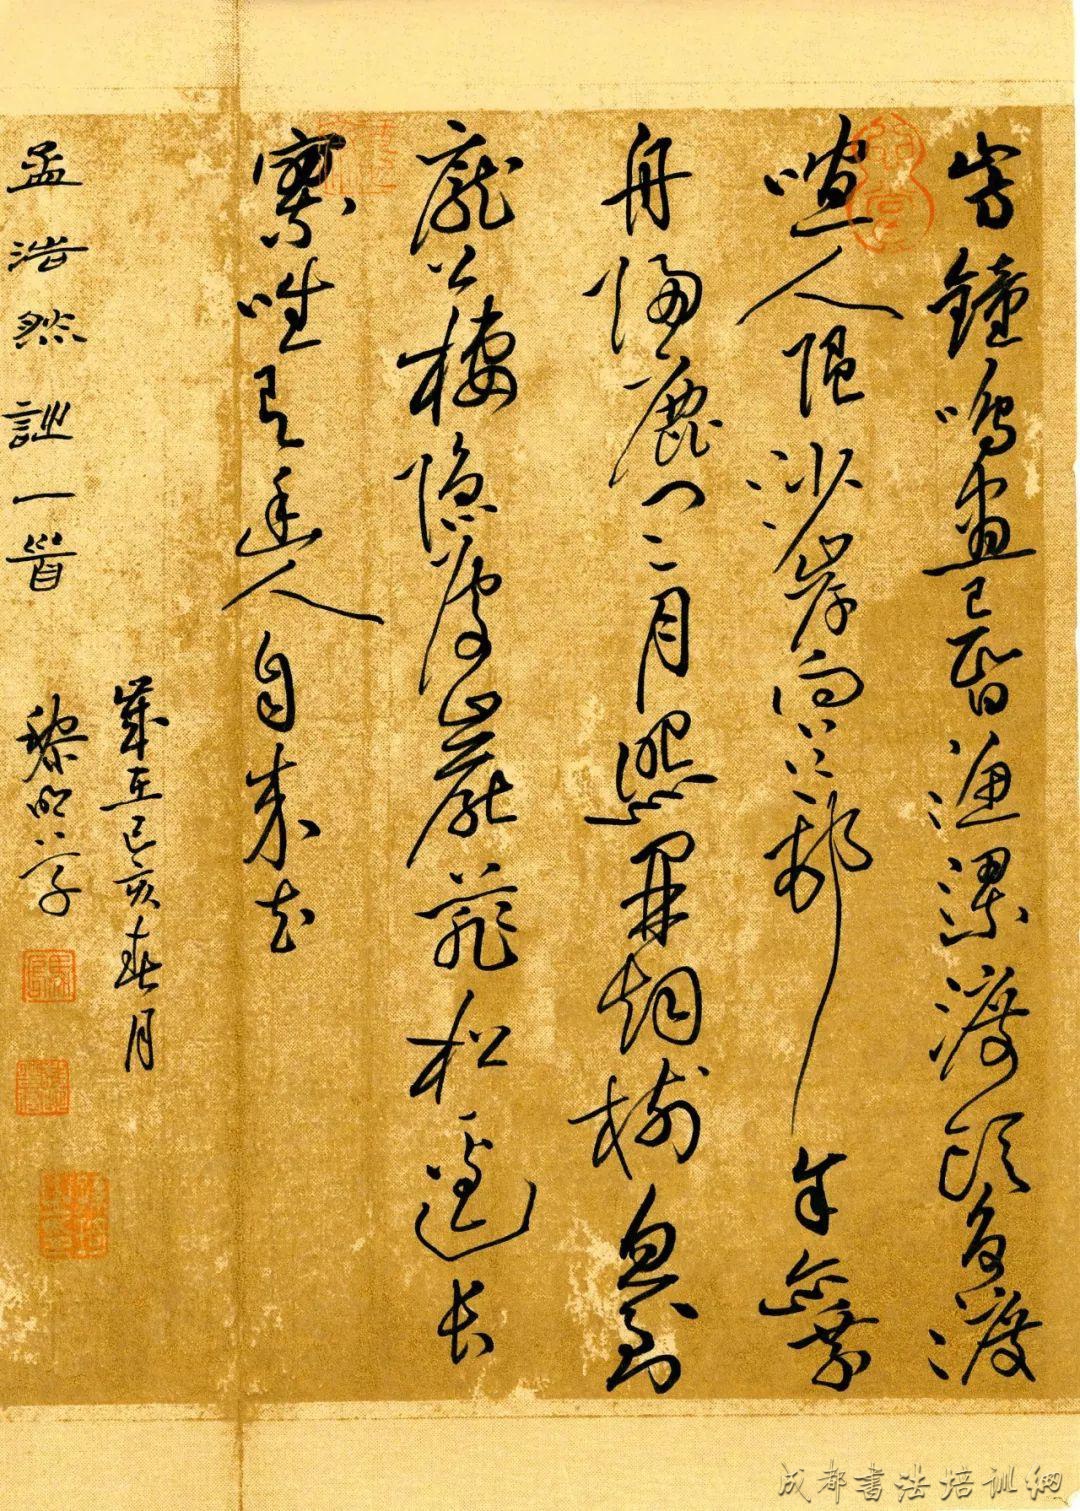 山寺鐘鳴晝已昏漁梁渡頭爭渡
喧人隨沙岸向江邨余亦乘
舟歸鹿門〻月照開烟樹忽到
龐公棲隱處巖扉松逕長
寥唯有幽人自来去
歲在己亥春月
孟浩然詩一首 黎明字
成都書法培训網